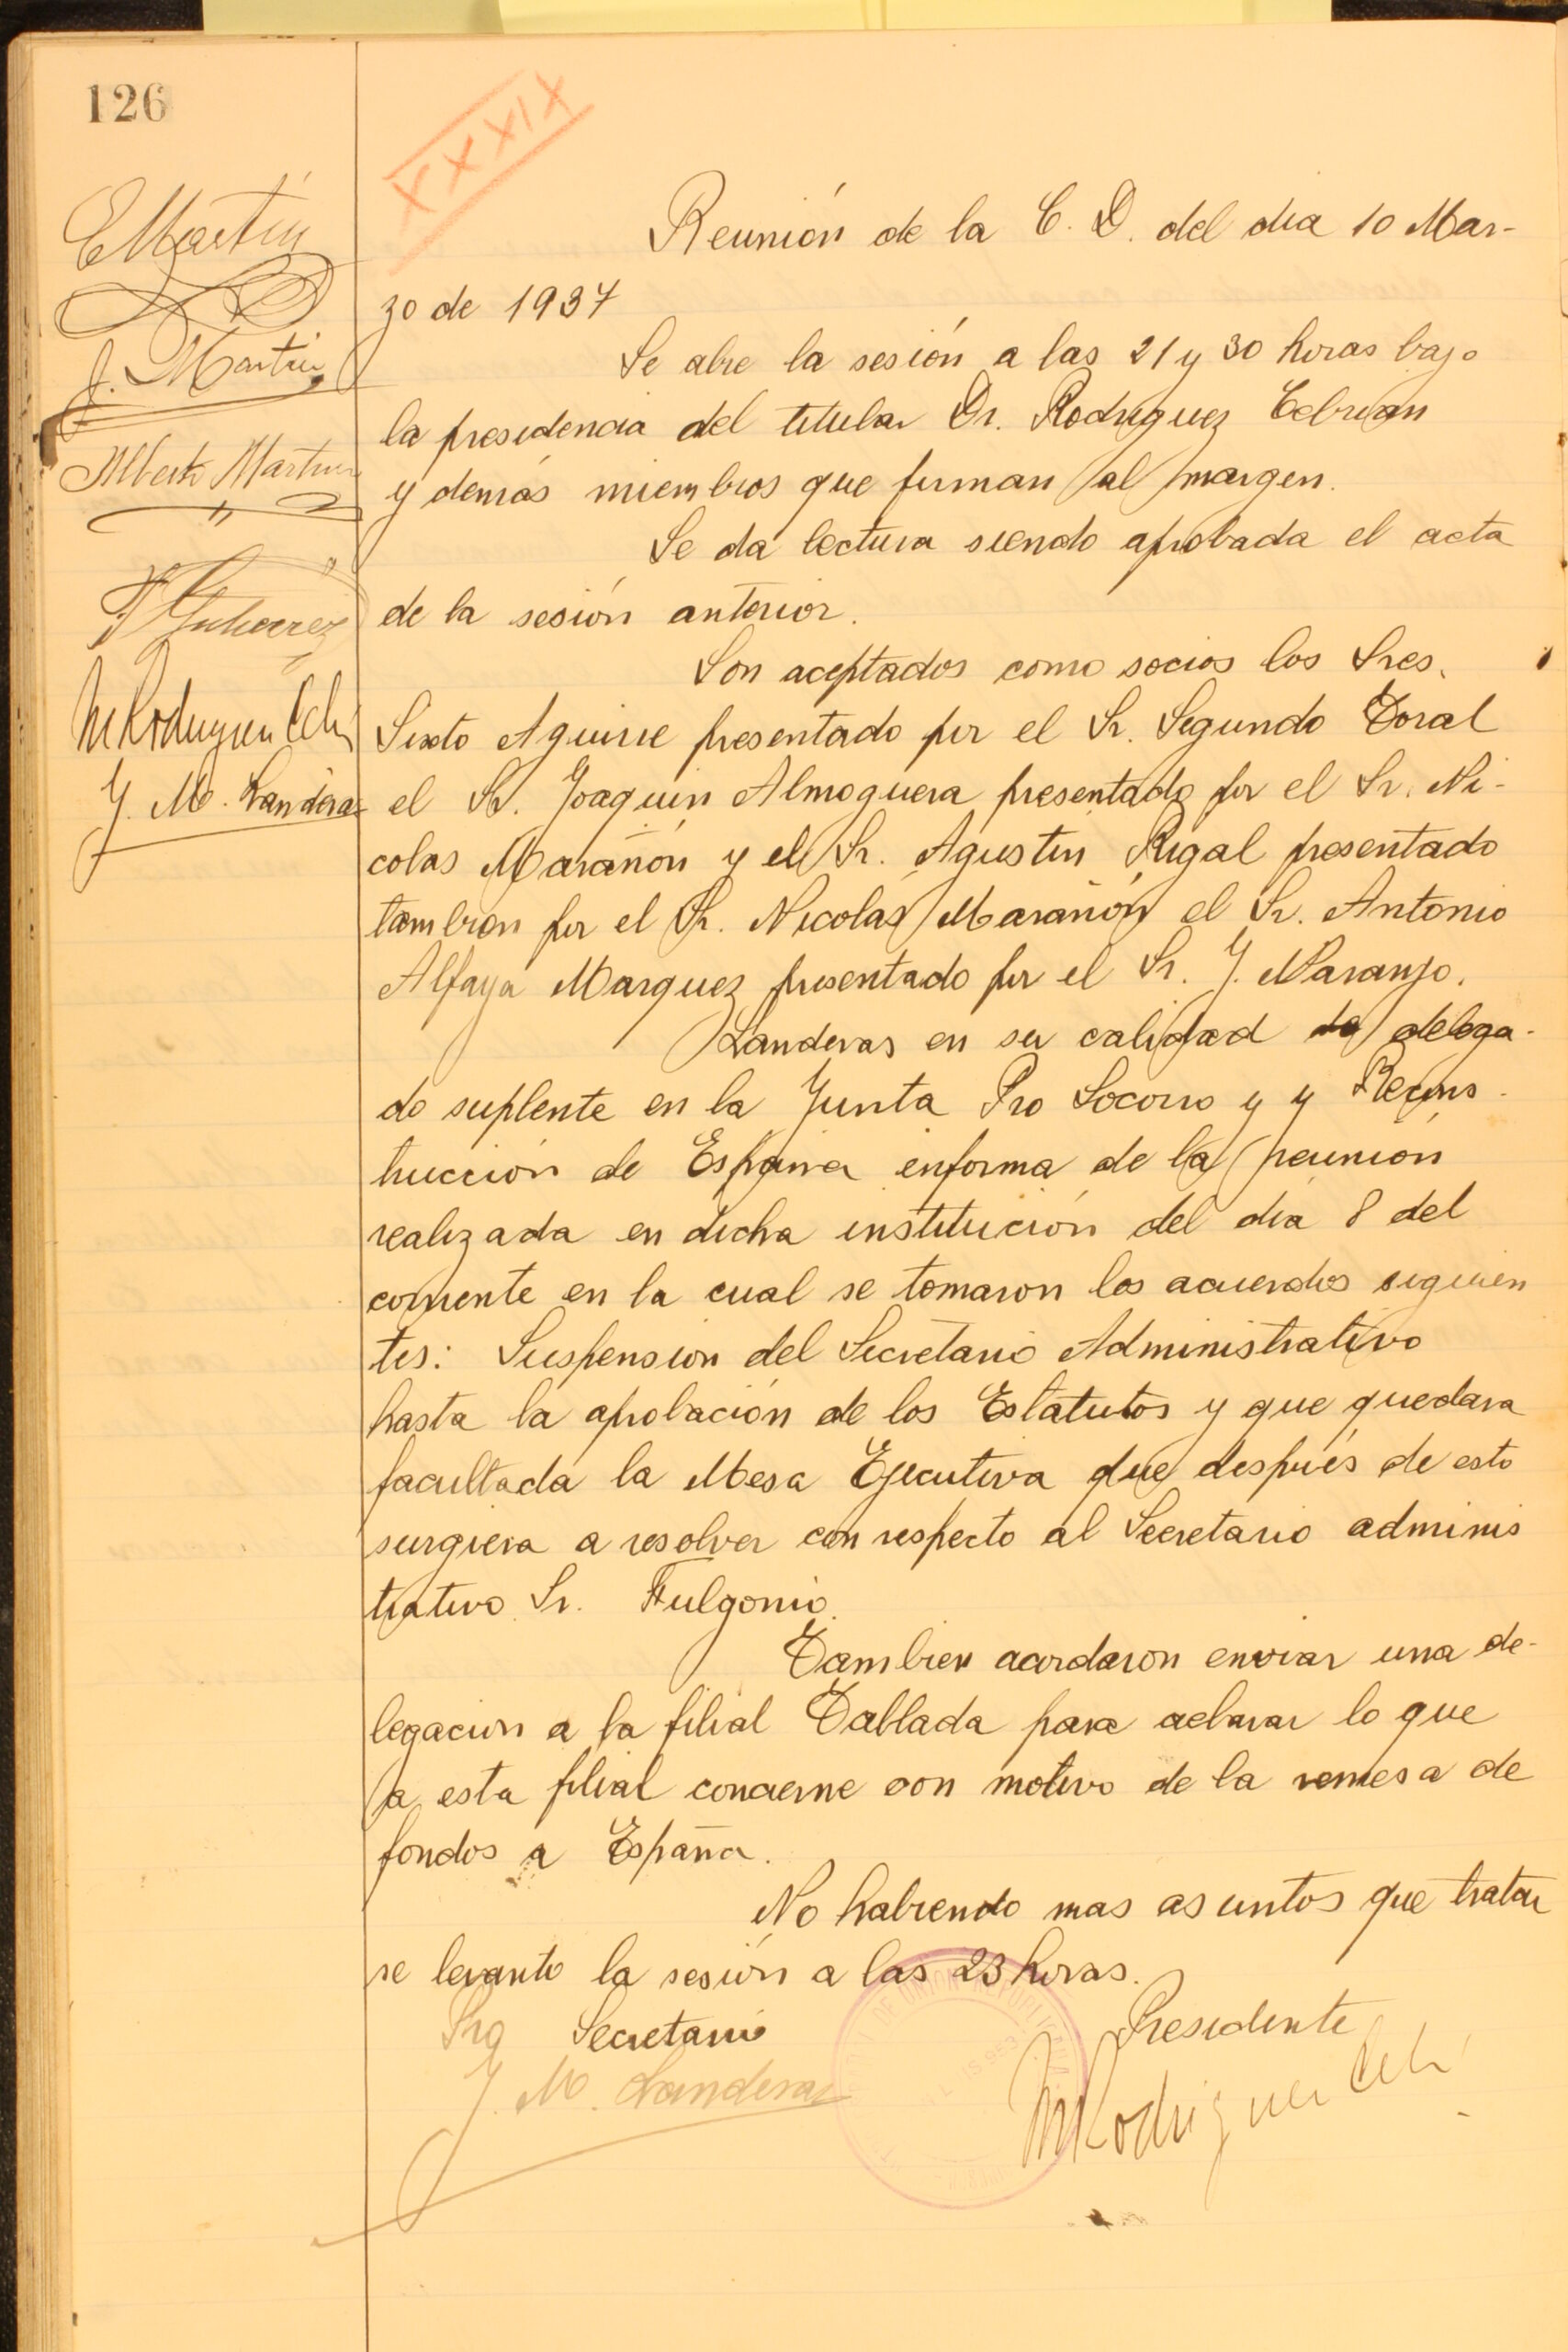 126
XXXIX
EMartin
J. Martin
Alberto Martin
Gutierrez
M Rodriguez Ceb
J. M. Landeras
Reunión de la C. D. del dia 10 Mar-
zo de 1937
Se abre la sesión a las 21 y 30 horas bajo
la presidencia del titular Dr. Rodriguez Cebrian
y demás miembros que firman al margen.
Se da lectura siendo aprobada el acta
de la sesión anterior.
Son aceptados como socios los Sres.
Sixto Aguirre presentado por el Sr. Segundo Toral
el Sr. Joaquin Almoguera presentado por el Sr. Ni-
colas Marañón y el Sr. Agustin Rigal presentado
tambien por el Sr. Nicolas Marañón el Sr. Antonio
Alfaya Marquez presentado por el Sr. J. Naranjo.
Landeras en su calidad de delega-
do suplente en la Junta Pro Socorro y y Recons-
trucción de España informa de la reunión
realizada en dicha institución del dia 8 del
corriente en la cual se tomaron los acuerdos siguien
tes: Suspension del Secretario Administrativo
hasta la aprobación de los Estatutos y que quedara
facultada la Mesa Ejecutiva que después de esto
surgiera a resolver con respecto al Secretario adminis
trativo Sr. Fulgonio.
Tambien acordaron enviar una de-
legacion a la filial Tablada para aclarar lo que
a esta filial concierne con motivo de la remesa de
fondos a España.
No habiendo mas asuntos que tratar
se levanto la sesión a las 23 horas.
Secretario
Presidente
J. M. Landeras
M Rodriguez Ceb